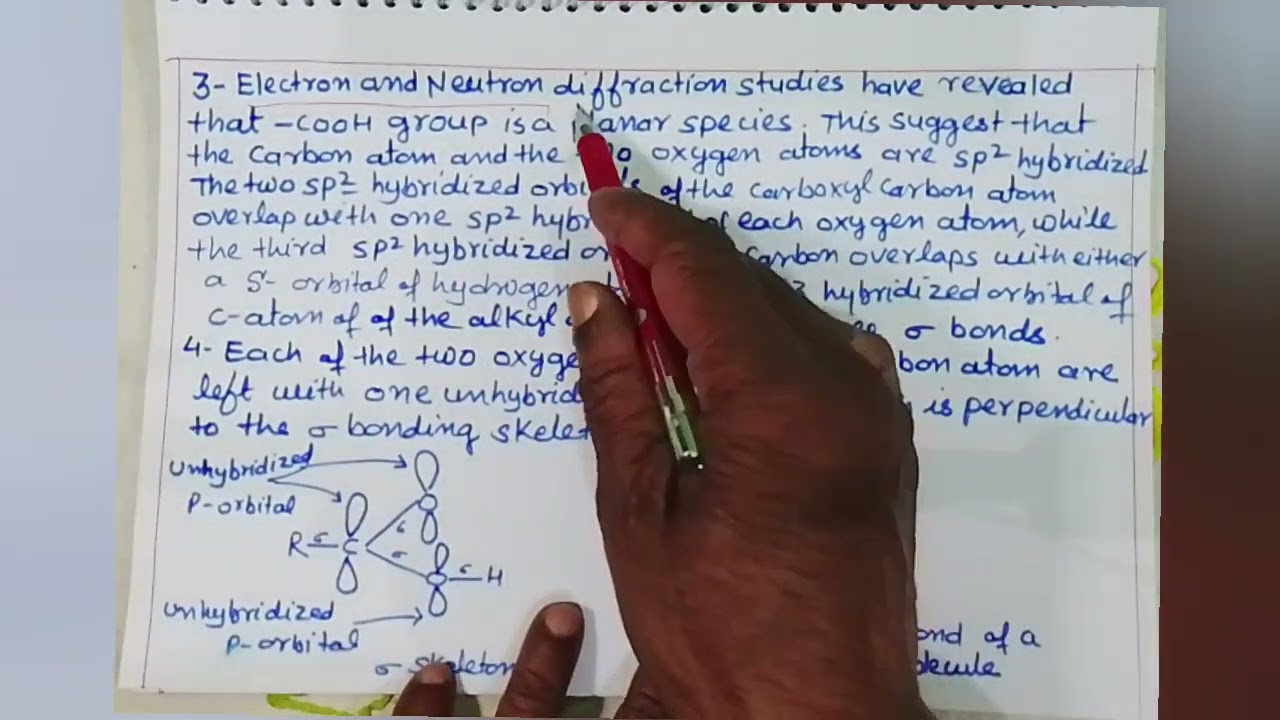 3- Electron and Neutron diffraction studies have revealed
that -COOH group is a planar species. This suggest that
the Carbon atom and the oxygen atoms are sp² hybridized
The two sp² hybridized of the carboxyl carbon atom
overlap with one sp² each oxygen atom, while
the third sp² hybridized Carbon overlaps with either
a S- orbital of hydrogen hybridized orbital of
C-atom of of the alkyl σ bonds.
4- Each of the two atom are
left with one is perpendicular
to the σ bonding
Unhybridized
P-orbital
R σ C σ σ O O σ H
Unhybridized
P-orbital
σ skeleton
of a